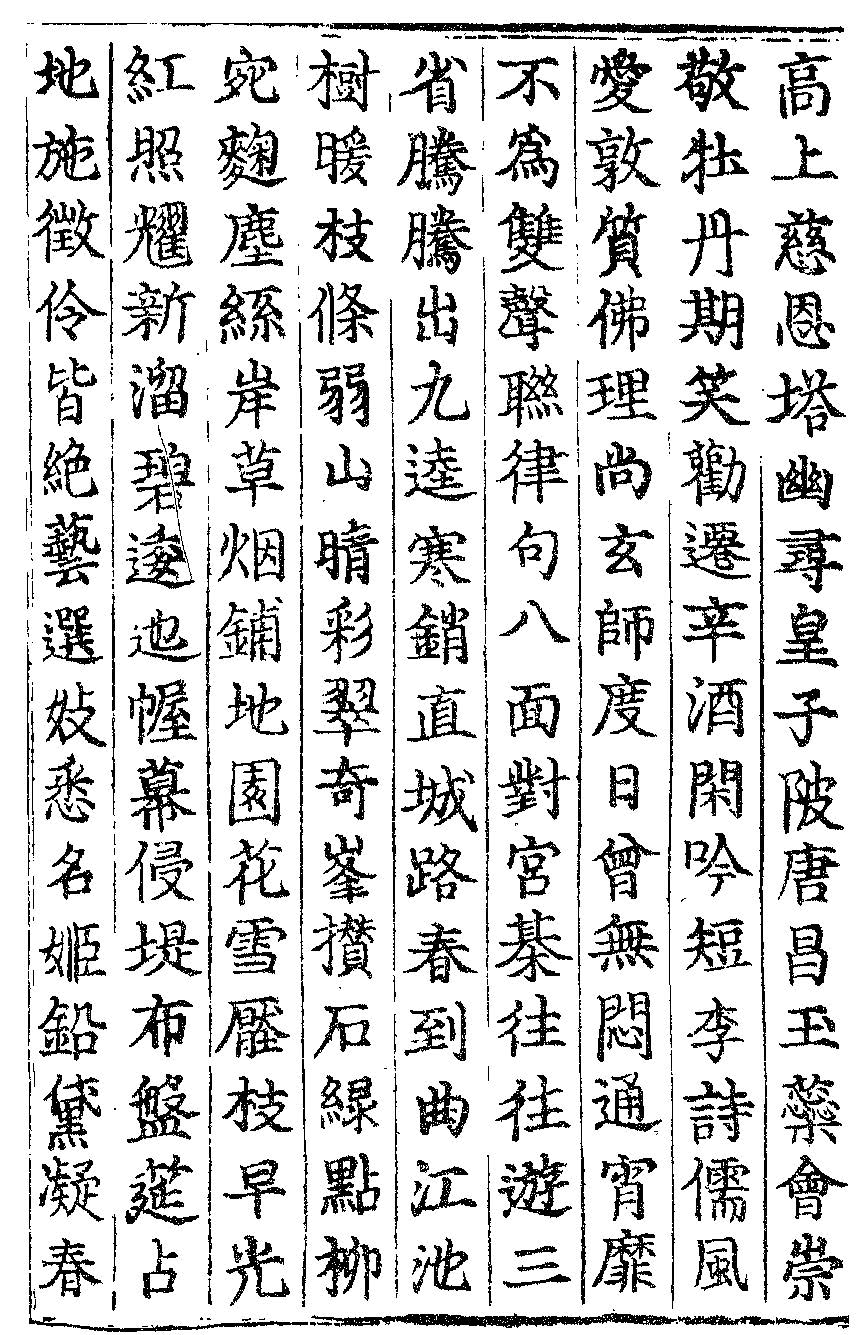 高上慈恩塔幽尋皇子陂唐昌玉蘂會崇
敬牡丹期笑勸遷辛酒閑吟短李詩儒風
愛敦質佛理尚玄師度日曾無悶通宵靡
不爲雙聲聯律句八面對宮棊往往遊三
省騰騰出九逵寒銷直城路春到曲江池
樹暖枝條弱山晴彩翠奇峯攅石緑點柳
宛麴塵絲岸草烟鋪地園花雪壓枝早光
紅照耀新溜碧逶迆幄幕侵堤布盤筵占
地施徵伶皆絶藝選妓悉名姬鉛黛凝春